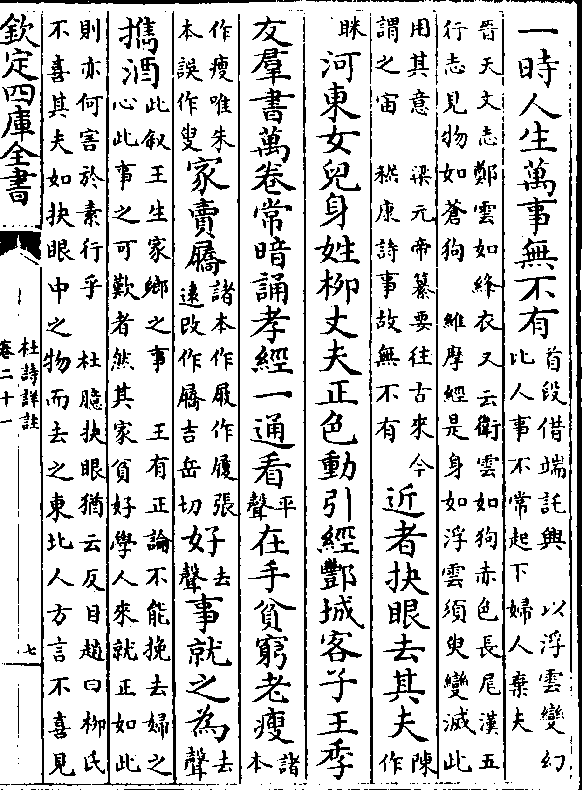 一時人生萬事無不有首段借端託興　以浮雲變幻比人事不常起下婦人棄夫
晉天文志鄭雲如絳衣又云衛雲如狗赤色長尾漢五
行志見物如蒼狗　維摩經是身如浮雲須臾變滅此
用其意　梁元帝纂要往古來今謂之宙　嵇康詩事故無不有近者抉眼去其夫陳作
眯河東女兒身姓柳丈夫正色動引經酆城客子王季
友羣書萬卷常暗誦孝經一通看平聲在手貧窮老瘦諸本
作瘦唯朱本誤作叟家賣屩諸本作屐作履張遠改作屩吉岳切好去聲事就之為去聲
擕酒此叙王生家鄉之事　王有正論不能挽去婦之心此事之可歎者然其家貧好學人來就正如此
則亦何害於素行乎　杜臆抉眼猶云反目趙曰柳氏
不喜其夫如抉眼中之物而去之東北人方言不喜見
欽定四庫全書
杜詩詳註
卷二十一
七